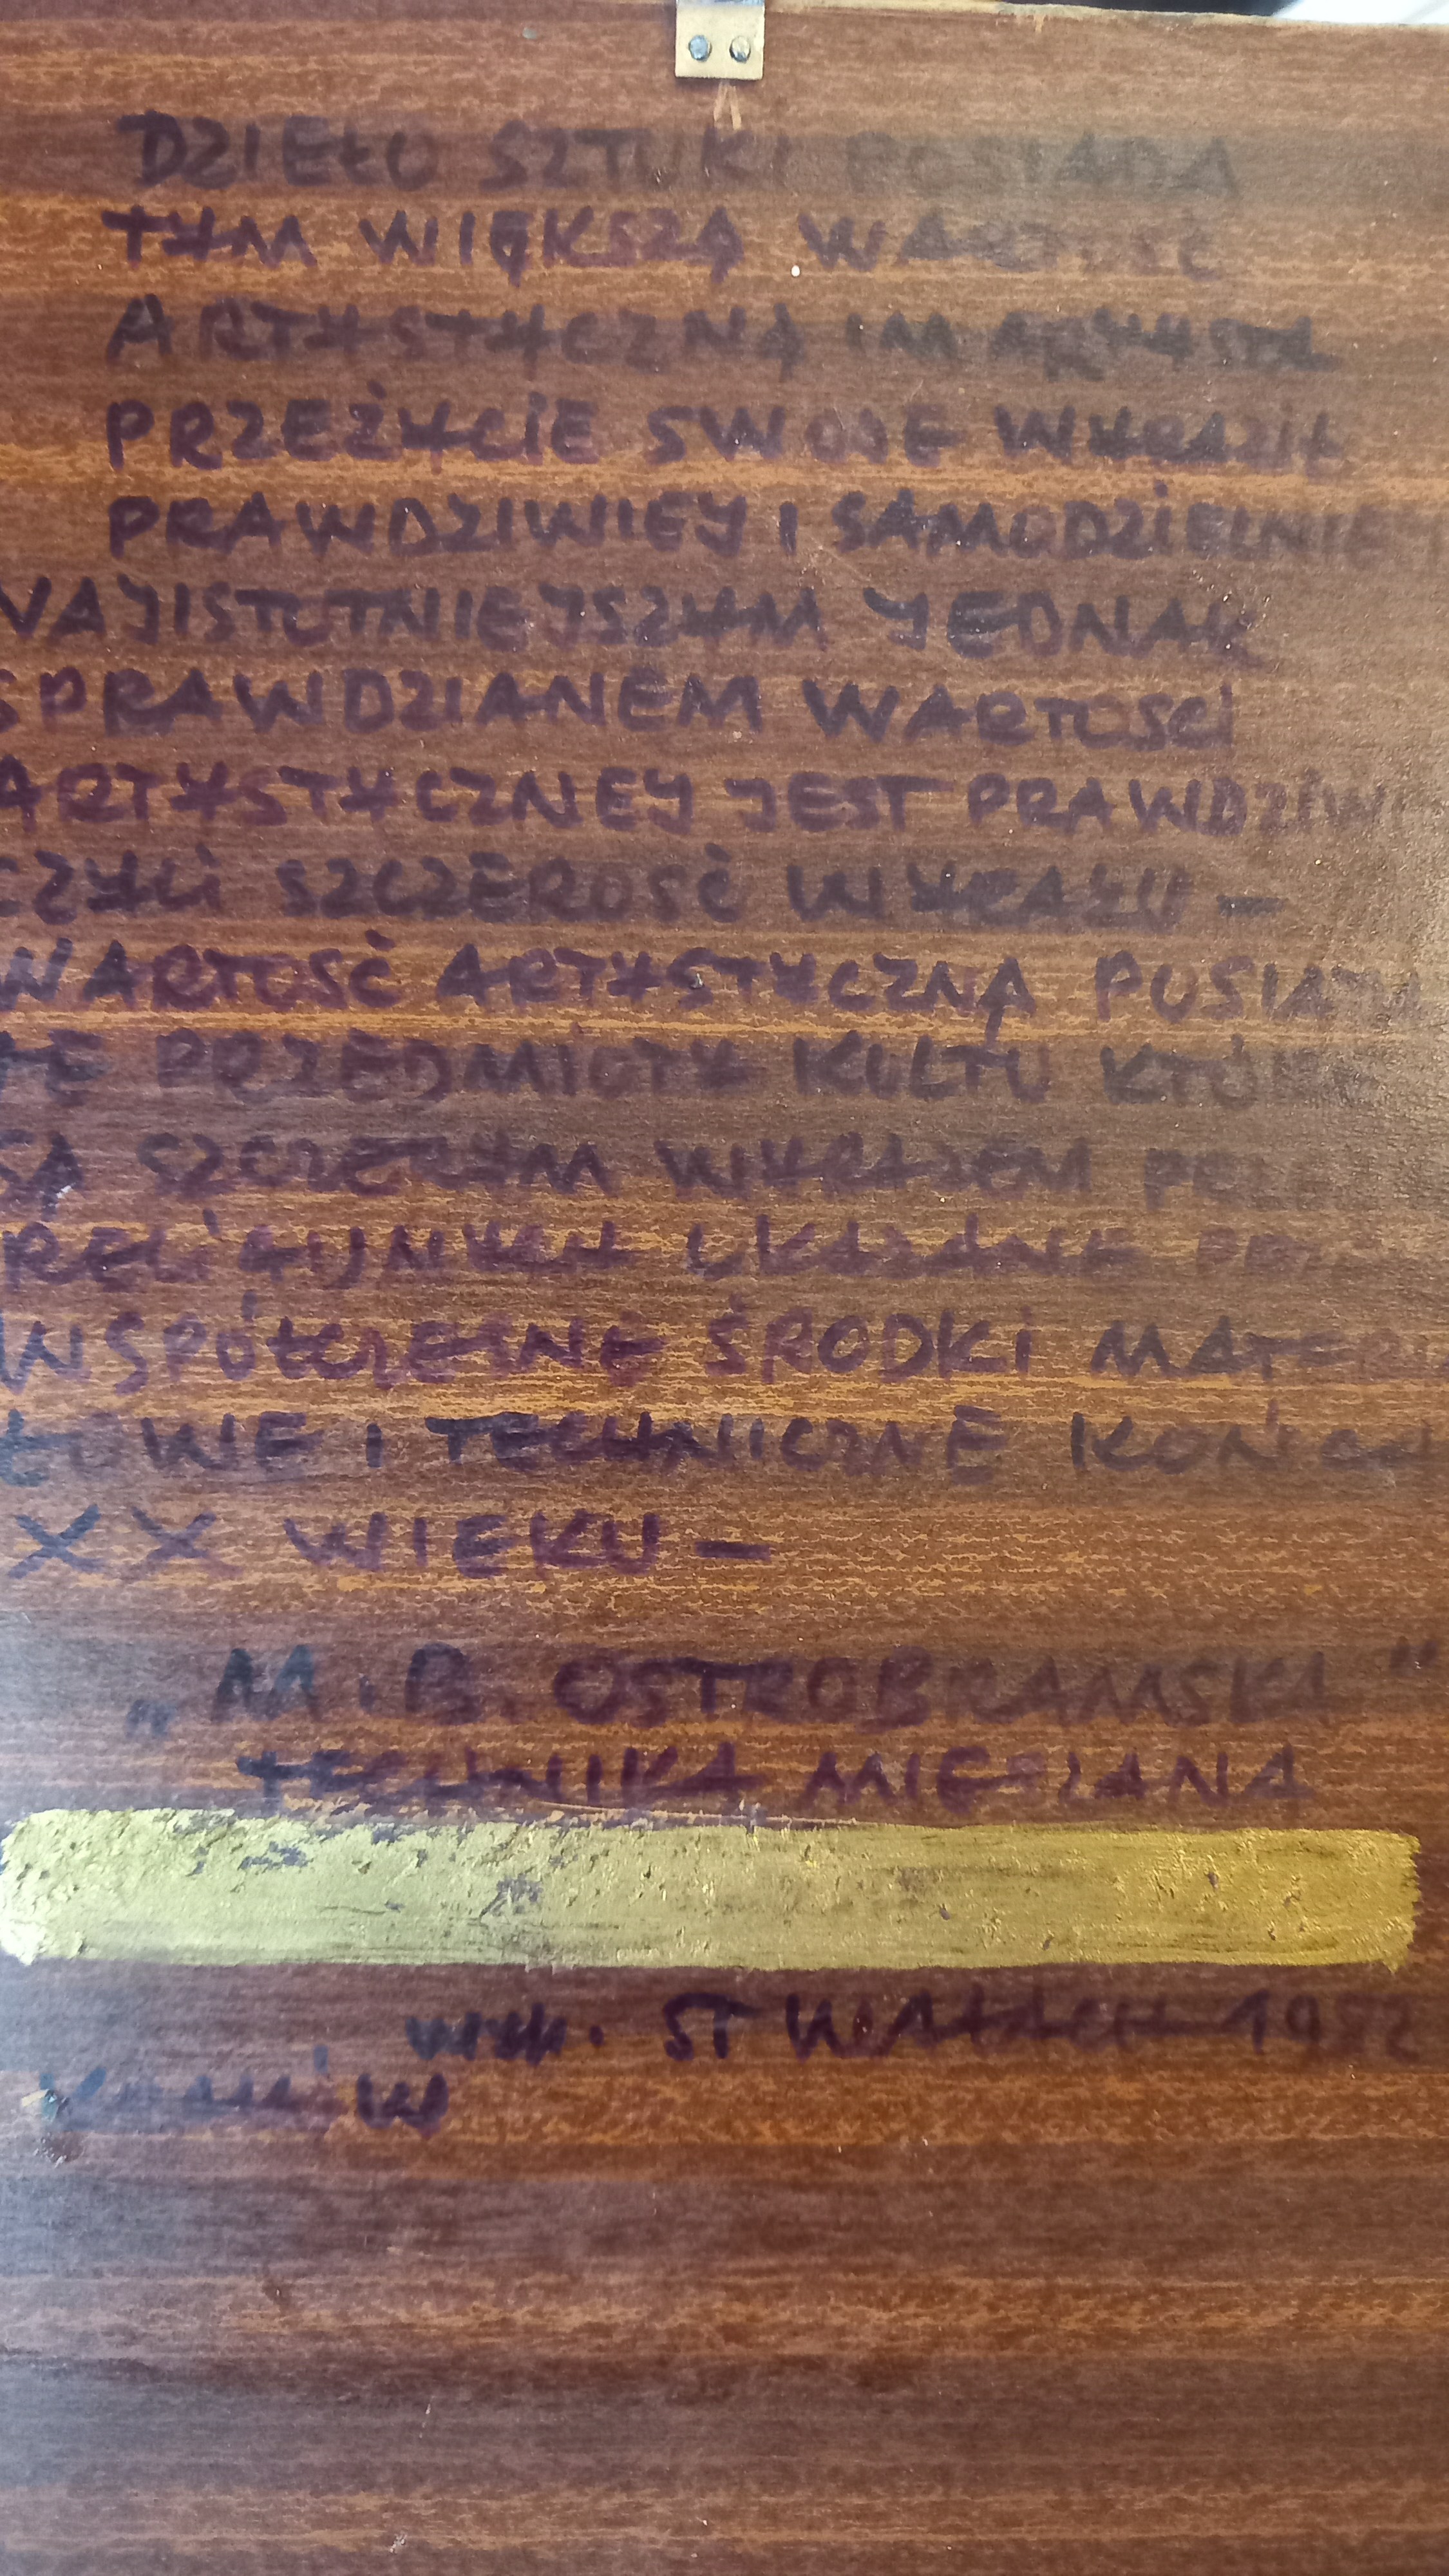 DZIEŁO SZTUKI POSIADA
TYM WIĘKSZĄ WARTOŚĆ
ARTYSTYCZNĄ IM ARTYSTA
PRZEŻYCIE SWOJE WYRAZIŁ
PRAWDZIWIEJ I SAMODZIELNIE
NAJISTOTNIEJSZYM JEDNAK
SPRAWDZIANEM WARTOSCI
ARTYSTYCZNEJ JEST PRAWDZIW
CZYLI SZCZEROSĆ WYRAZU -
WARTOSĆ ARTYSTYCZNĄ POSIADA
TE PRZEDMIOTY KULTU KTÓRE
SĄ SZCZERYM WYRAZEM
RELIGIJNYCH
WSPÓŁCZESNE ŚRODKI MATERIA
ŁOWE I TECHNICZNE KOŃCA
XX WIEKU -
„M.B. OSTROBRAMSKA"
TECHNIKA MIESZANA
ST WAŁACH 1982